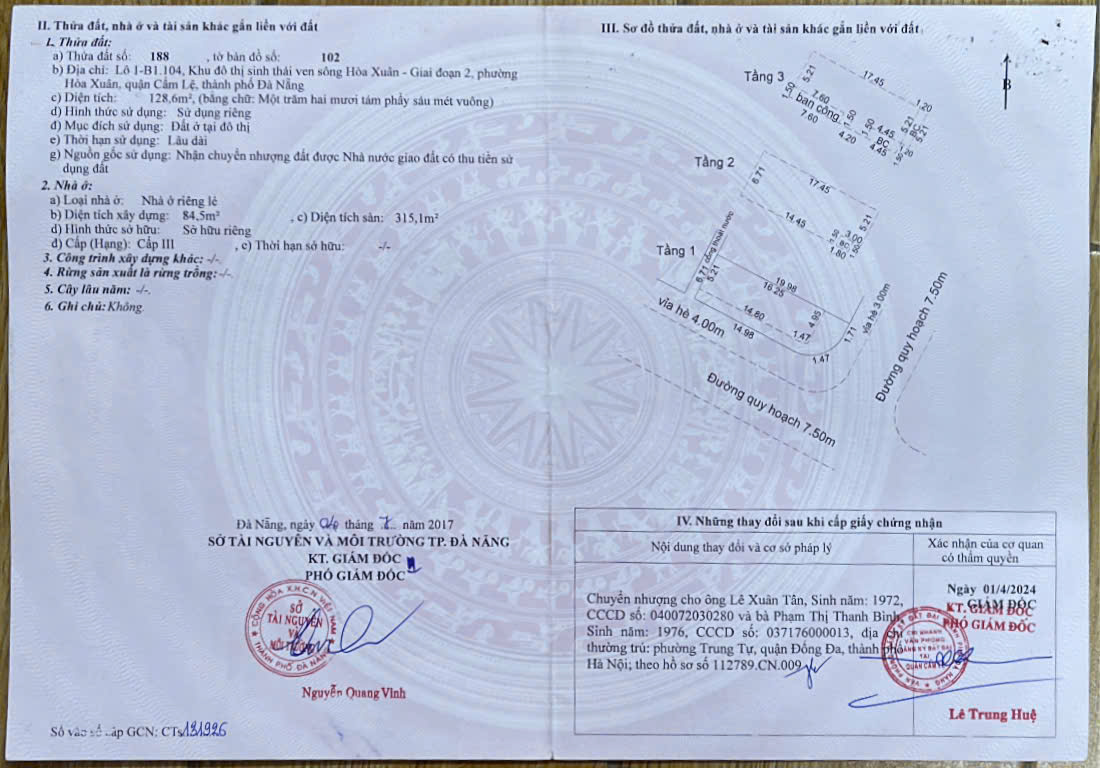 II. Thửa đất, nhà ở và tài sản khác gắn liền với đất
1. Thửa đất:
a) Thửa đất số: 188 , tờ bản đồ số: 102
b) Địa chỉ: Lô 1-B1.104, Khu đô thị sinh thái ven sông Hòa Xuân - Giai đoạn 2, phường
Hòa Xuân, quận Cẩm Lệ, thành phố Đà Nẵng
c) Diện tích: 128,6m², (bằng chữ: Một trăm hai mươi tám phẩy sáu mét vuông)
d) Hình thức sử dụng: Sử dụng riêng
đ) Mục đích sử dụng: Đất ở tại đô thị
e) Thời hạn sử dụng: Lâu dài
g) Nguồn gốc sử dụng: Nhận chuyển nhượng đất được Nhà nước giao đất có thu tiền sử
dụng đất
2. Nhà ở:
a) Loại nhà ở: Nhà ở riêng lẻ
b) Diện tích xây dựng: 84,5m² , c) Diện tích sàn: 315,1m²
d) Hình thức sở hữu: Sở hữu riêng
đ) Cấp (Hạng): Cấp III , e) Thời hạn sở hữu: -/-
3. Công trình xây dựng khác: -/-
4. Rừng sản xuất là rừng trồng: -/-
5. Cây lâu năm: -/-
6. Ghi chú: Không.
Đà Nẵng, ngày tháng năm 2017
SỞ TÀI NGUYÊN VÀ MÔI TRƯỜNG TP. ĐÀ NẴNG
KT. GIÁM ĐỐC
PHÓ GIÁM ĐỐC
CỘNG HÒA X.H.C.N VIỆT NAM
SỞ
TÀI NGUYÊN
VÀ
MÔI TRƯỜNG
THÀNH PHỐ ĐÀ NẴNG
Nguyễn Quang Vinh
Số vào sổ cấp GCN: CTs131926
III. Sơ đồ thửa đất, nhà ở và tài sản khác gắn liền với đất
B
Tầng 3
17.45
5.21
1.20
1.50
7.60
ban công
7.60
1.50
4.20
1.50
4.45
BC
4.45
5.21
5.21
BC
1.20
1.50
Tầng 2
6.71
17.45
14.45
5.21
3.00
1.50
BC
1.80
1.50
Tầng 1
cống thoát nước
6.71
5.21
19.98
16.25
14.80
14.98
4.95
1.47
1.47
1.71
vỉa hè 4.00m
vỉa hè 3.00m
Đường quy hoạch 7.50m
Đường quy hoạch 7.50m
IV. Những thay đổi sau khi cấp giấy chứng nhận
Nội dung thay đổi và cơ sở pháp lý
Xác nhận của cơ quan
có thẩm quyền
Chuyển nhượng cho ông Lê Xuân Tân, Sinh năm: 1972,
CCCD số: 040072030280 và bà Phạm Thị Thanh Bình,
Sinh năm: 1976, CCCD số: 037176000013, địa chỉ
thường trú: phường Trung Tự, quận Đống Đa, thành phố
Hà Nội; theo hồ sơ số 112789.CN.009
Ngày 01/4/2024
KT. GIÁM ĐỐC
PHÓ GIÁM ĐỐC
CHI NHÁNH
VĂN PHÒNG
ĐĂNG KÝ ĐẤT ĐAI
TẠI
QUẬN CẨM LỆ
Lê Trung Huệ